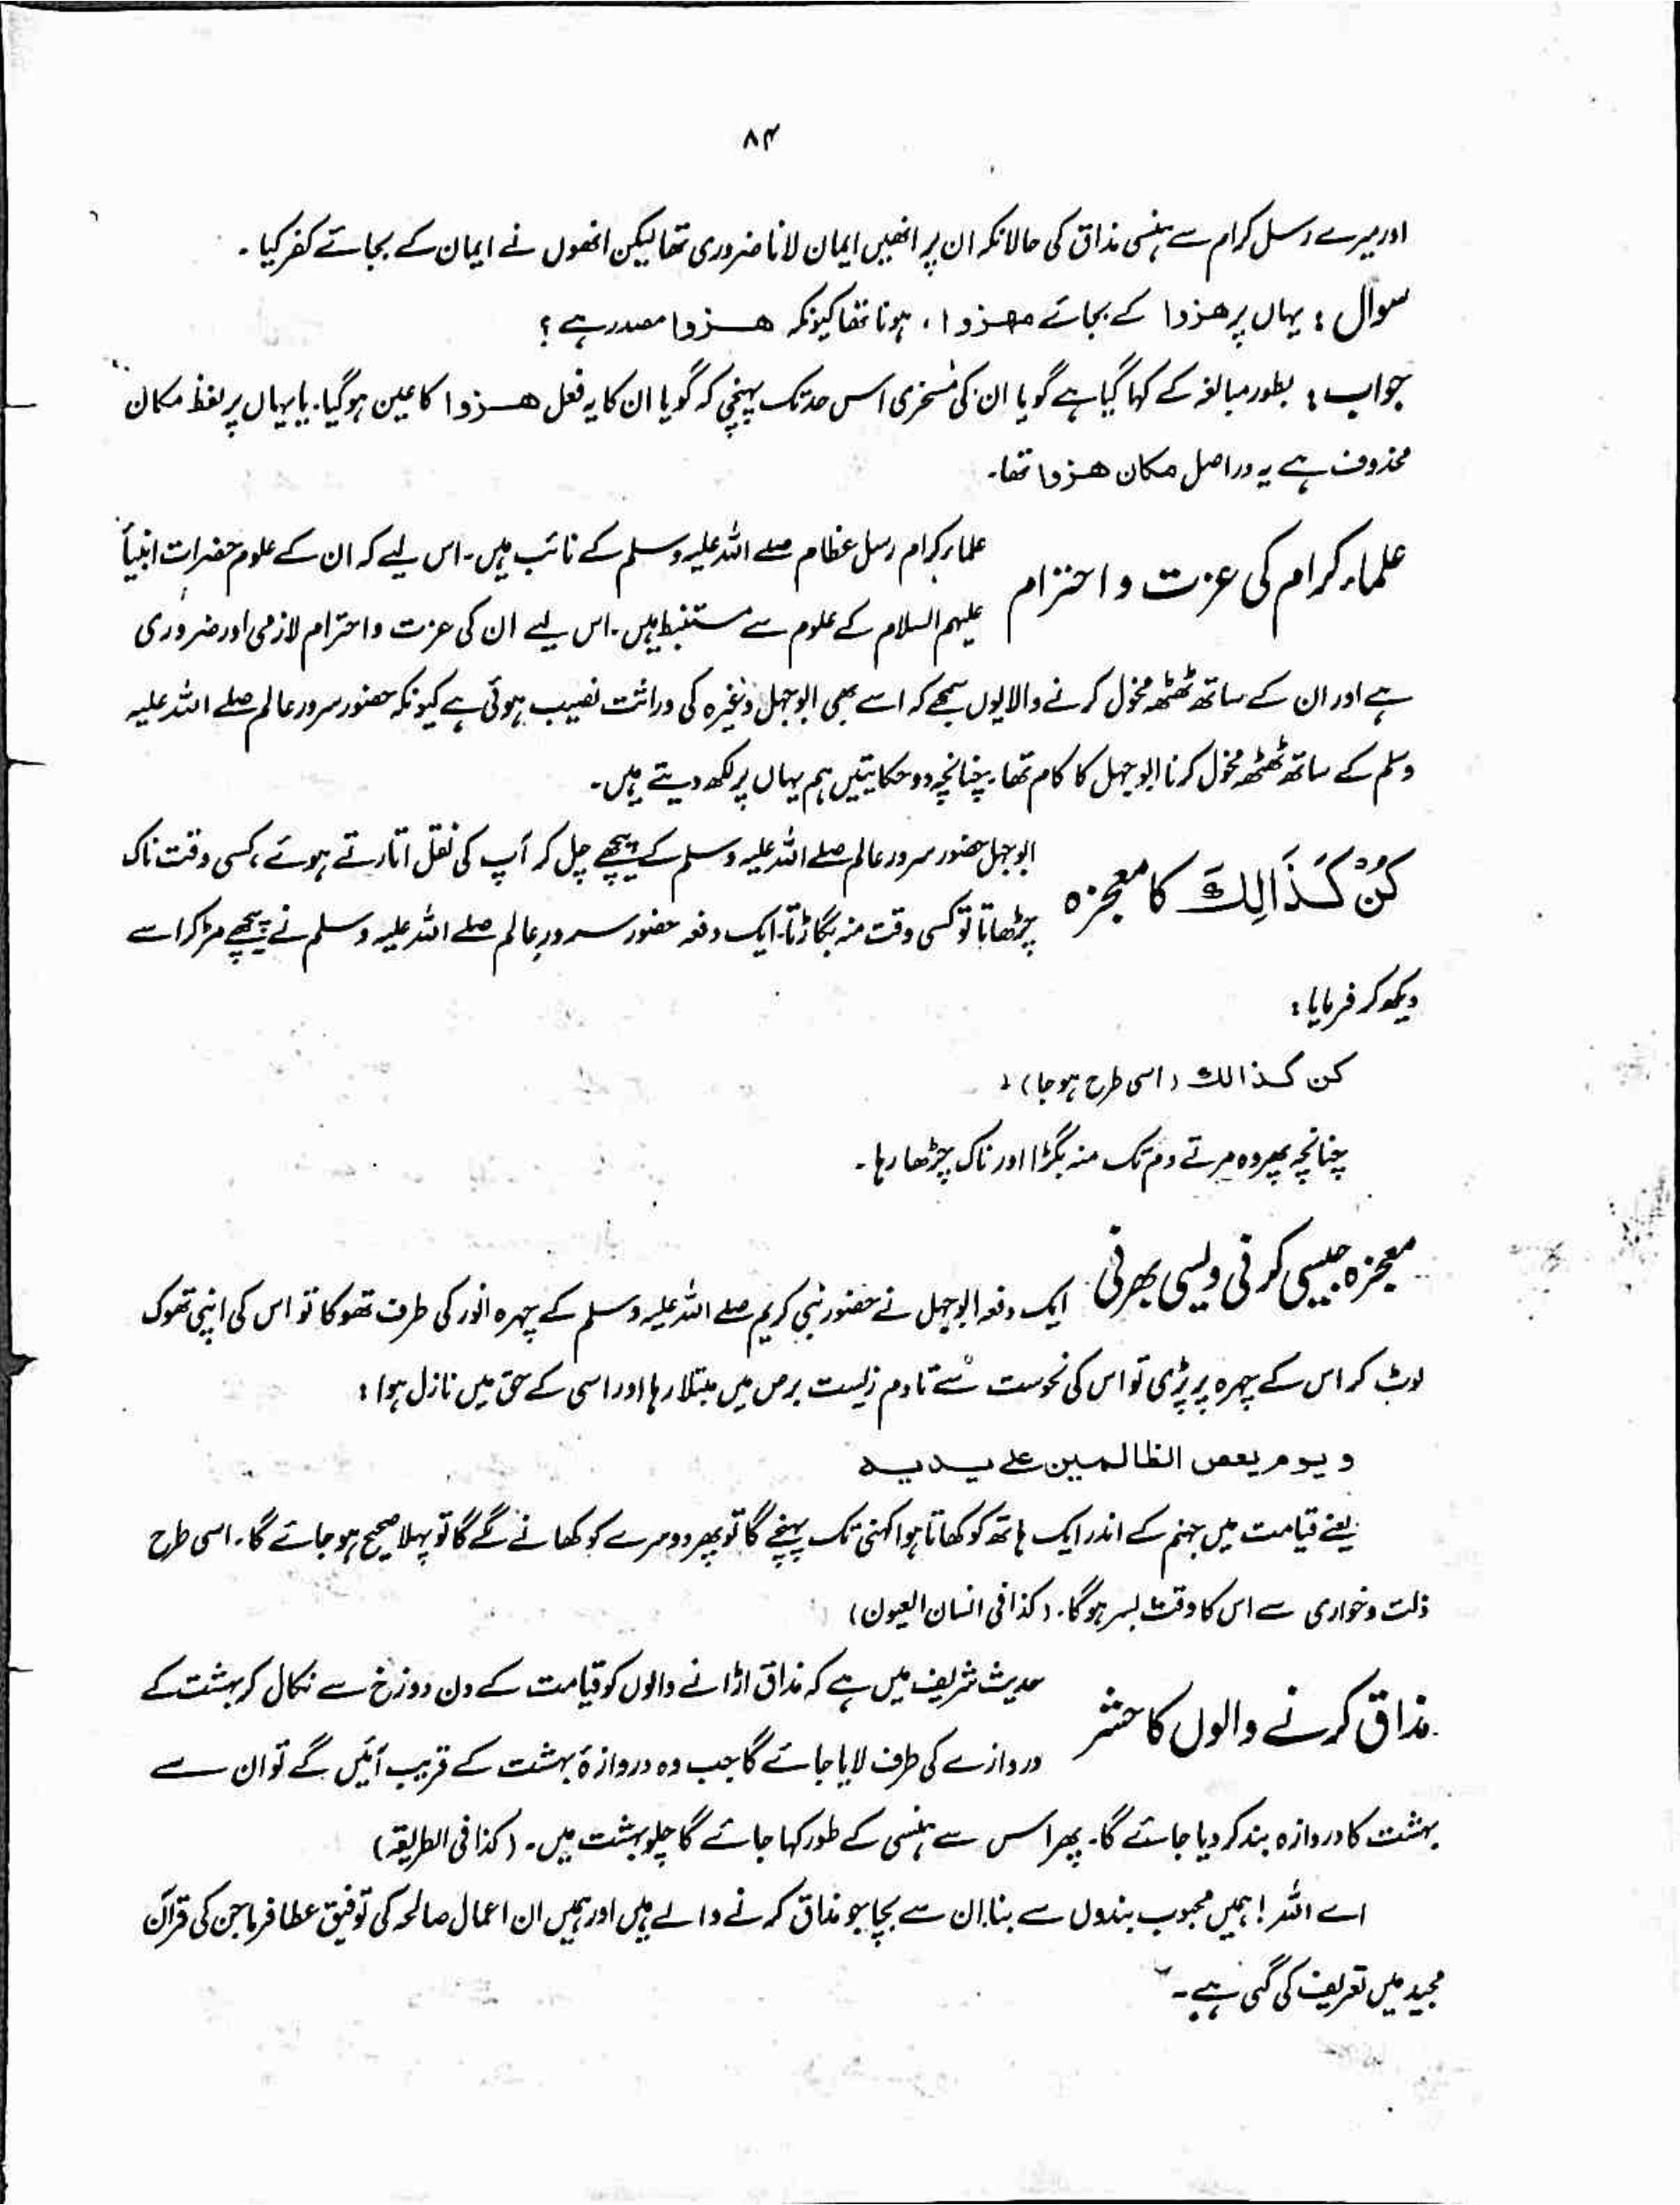 ۸۴
اور میرے رسل کرام سے ہنسی مذاق کی حالانکہ ان پر انھیں ایمان لانا ضروری تھا لیکن انھوں نے ایمان کے بجائے کفر کیا ۔
سوال : یہاں پر ھزوا کے بجائے مھزوا ، ہونا تھا کیونکہ ھزوا مصدر ہے ؟
جواب : بطور مبالغہ کے کہا گیا ہے گویا ان کی مسخری اس حد تک پہنچی کہ گویا ان کا یہ فعل ھزوا کا عین ہو گیا ۔ یا یہاں پر لفظ مکان
محذوف ہے یہ دراصل مکان ھزوا تھا ۔
علماء کرام کی عزت و احترام
علماء کرام رسل عظام صلے اللہ علیہ وسلم کے نائب ہیں ۔ اس لیے کہ ان کے علوم حضرات انبیأ
علیہم السلام کے علوم سے مستنبط ہیں ۔ اس لیے ان کی عزت و احترام لازمی اور ضروری
ہے اور ان کے ساتھ ٹھٹھہ مخول کرنے والا یوں سمجھے کہ اسے بھی ابوجہل وغیرہ کی وراثت نصیب ہوئی ہے کیونکہ حضور سرور عالم صلے اللہ علیہ
وسلم کے ساتھ ٹھٹھہ مخول کرنا ابوجہل کا کام تھا ۔ چنانچہ دو حکایتیں ہم یہاں پر لکھ دیتے ہیں ۔
کُنْ کَذَالِكَ کا معجزہ
ابوجہل حضور سرور عالم صلے اللہ علیہ وسلم کے پیچھے چل کر آپ کی نقل اتارتے ہوئے ، کسی وقت ناک
چڑھاتا تو کسی وقت منہ بگاڑتا ۔ ایک دفعہ حضور سرورِ عالم صلے اللہ علیہ وسلم نے پیچھے مڑ کر اسے
دیکھ کر فرمایا :
کن کذالك ( اسی طرح ہو جا ) ؛
چنانچہ پھر وہ مرتے دم تک منہ بگڑا اور ناک چڑھا رہا ۔
معجزہ جیسی کرنی ویسی بھرنی
ایک دفعہ ابوجہل نے حضور نبی کریم صلے اللہ علیہ وسلم کے چہرہ انور کی طرف تھوکا تو اس کی اپنی تھوک
لوٹ کر اس کے چہرہ پر پڑی تو اس کی نحوست سے تادم زیست برص میں مبتلا رہا اور اسی کے حق میں نازل ہوا :
ویوم یعص الظالمین علے یدیہ
یعنے قیامت میں جہنم کے اندر ایک ہاتھ کو کھاتا ہوا کہنی تک پہنچے گا تو پھر دوسرے کو کھانے لگے گا تو پہلا صحیح ہو جائے گا ۔ اسی طرح
ذلت و خواری سے اس کا وقت بسر ہو گا ۔ ( کذا فی انسان العیون )
مذاق کرنے والوں کا حشر
حدیث شریف میں ہے کہ مذاق اڑانے والوں کو قیامت کے دن دوزخ سے نکال کر بہشت کے
دروازے کی طرف لایا جائے گا جب وہ دروازۂ بہشت کے قریب آئیں گے تو ان سے
بہشت کا دروازہ بند کر دیا جائے گا ۔ پھر اس سے ہنسی کے طور کہا جائے گا چلو بہشت میں ۔ ( کذا فی الطریقہ )
اے اللہ ! ہمیں محبوب بندوں سے بنا ان سے بچا جو مذاق کرنے والے ہیں اور ہمیں ان اعمال صالحہ کی توفیق عطا فرما جن کی قرآن
مجید میں تعریف کی گئی ہے ۔